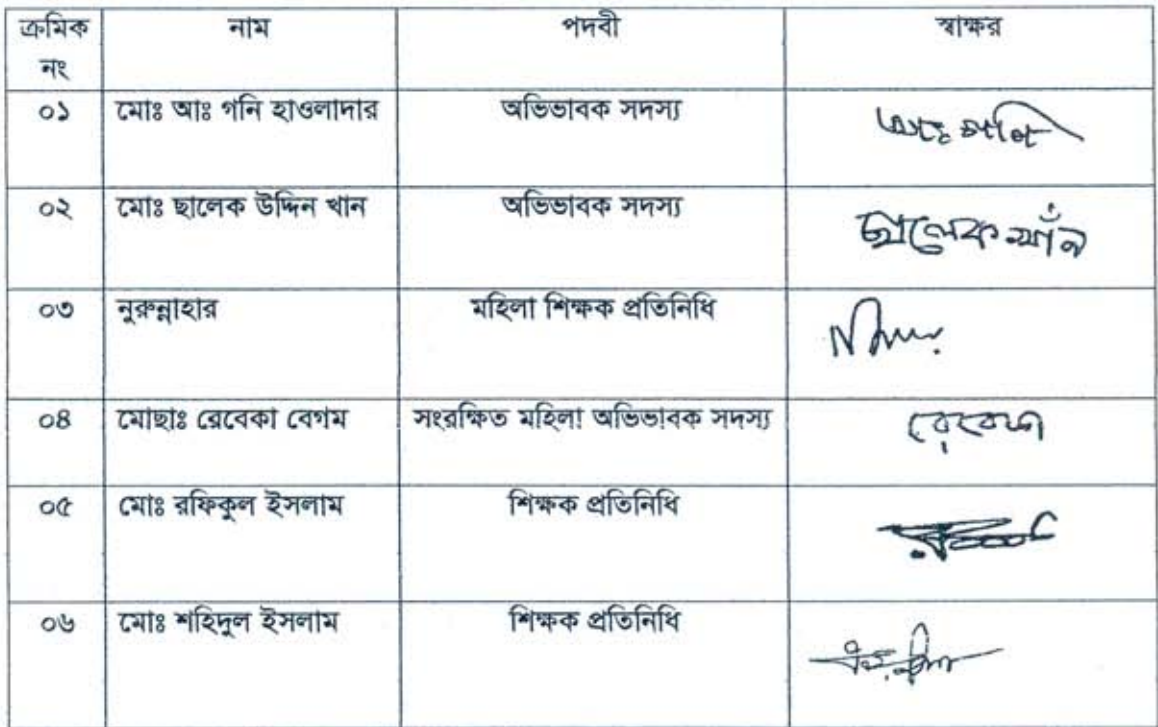 ক্রমিক নং নাম পদবী স্বাক্ষর
০১ মোঃ আঃ গনি হাওলাদার অভিভাবক সদস্য আঃ গনি
০২ মোঃ ছালেক উদ্দিন খান অভিভাবক সদস্য ছালেক খাঁন
০৩ নুরুন্নাহার মহিলা শিক্ষক প্রতিনিধি
০৪ মোছাঃ রেবেকা বেগম সংরক্ষিত মহিলা অভিভাবক সদস্য রেবেকা
০৫ মোঃ রফিকুল ইসলাম শিক্ষক প্রতিনিধি
০৬ মোঃ শহিদুল ইসলাম শিক্ষক প্রতিনিধি